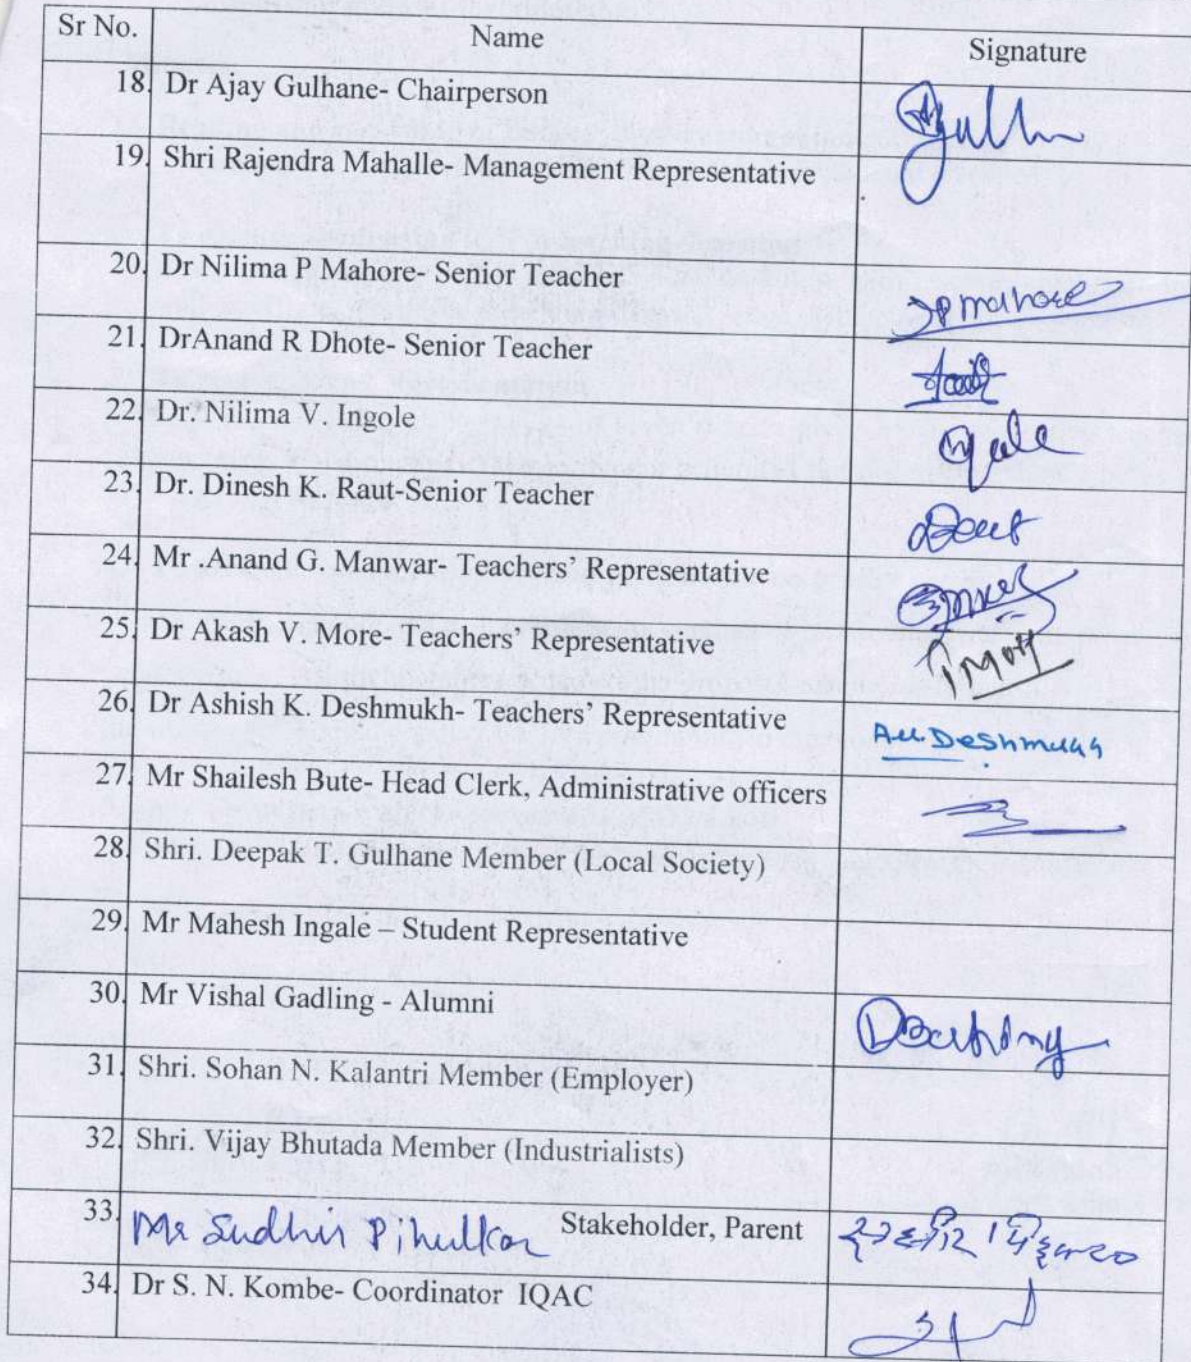 Sr No. Name Signature
18. Dr Ajay Gulhane- Chairperson
19. Shri Rajendra Mahalle- Management Representative
20. Dr Nilima P Mahore- Senior Teacher
21. DrAnand R Dhote- Senior Teacher
22. Dr. Nilima V. Ingole
23. Dr. Dinesh K. Raut-Senior Teacher
24. Mr .Anand G. Manwar- Teachers’ Representative
25. Dr Akash V. More- Teachers’ Representative
26. Dr Ashish K. Deshmukh- Teachers’ Representative
27. Mr Shailesh Bute- Head Clerk, Administrative officers
28. Shri. Deepak T. Gulhane Member (Local Society)
29. Mr Mahesh Ingale – Student Representative
30. Mr Vishal Gadling - Alumni
31. Shri. Sohan N. Kalantri Member (Employer)
32. Shri. Vijay Bhutada Member (Industrialists)
33. Mr Sudhir Pihulkar Stakeholder, Parent
34. Dr S. N. Kombe- Coordinator IQAC